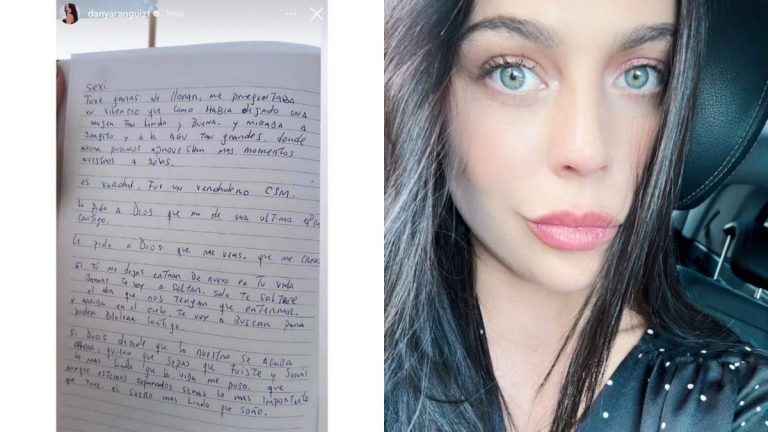 danyaranguizf 1min
SEXI:
TUVE GANAS DE LLORAR, ME PREGUNTABA
EN SILENCIO QUE COMO HABIA DEJADO UNA
MUJER TAN LINDA y BUENA. y MIRABA A
y A LA TAN GRANDES. DONDE
PUDIMOS APROVECHAR MAS MOMENTOS
NUESTROS A SOLAS.
ES VERDAD. FUI UN VERDADERO CSM.
LE PIDO A DIOS QUE ME DE UNA ULTIMA
CONTIGO.
LE PIDO A DIOS QUE ME VEAS, QUE ME CREAS
SI TÚ ME DEJAS ENTRAR DE NUEVO EN TU VIDA
JAMAS TE VOY A SOLTAR. SOLO TE SOLTARE
EL DIA QUE NOS TENGAN QUE ENTERRAR.
y EN EL CIELO TE VOY A BUSCAR PARA
PODER CONTIGO.
SI DIOS QUE LO NUESTRO SE ACABA
QUIERO QUE SEPAS QUE FUISTE y SERÁS
LO MAS LINDO QUE LA VIDA ME PUSO. QUE
AUNQUE ESTEMOS SEPARADOS SERAS LO MAS IMPORTANTE
QUE TUVE. EL SUEÑO MAS LINDO QUE SOÑE.